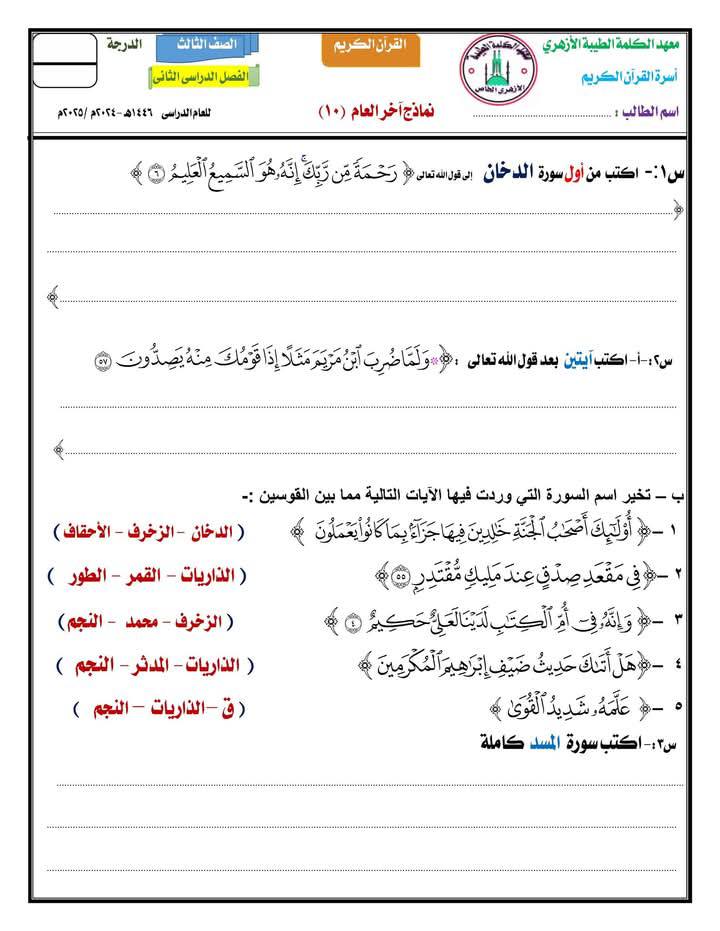 معهد الكلمة الطيبة الأزهري
القرآن الكريم
الصف الثالث
الدرجة
أسرة القرآن الكريم
معهد الكلمة الطيبة
الأزهرى الخاص
الفصل الدراسى الثانى
اسم الطالب : ........................................
نماذج آخر العام (١٠)
للعام الدراسى ١٤٤٦هـ -٢٠٢٤م /٢٠٢٥م
س١:- اكتب من أول سورة الدخان إلى قول الله تعالى ﴿ رَحْمَةً مِّن رَّبِّكَ ۚ إِنَّهُۥ هُوَ ٱلسَّمِيعُ ٱلْعَلِيمُ ٦ ﴾
﴿
﴾
س٢:-أ- اكتب آيتين بعد قول الله تعالى : ﴿ ۞ وَلَمَّا ضُرِبَ ٱبْنُ مَرْيَمَ مَثَلًا إِذَا قَوْمُكَ مِنْهُ يَصِدُّونَ ٥٧
﴾
ب – تخير اسم السورة التي وردت فيها الآيات التالية مما بين القوسين :-
١ -﴿ أُو۟لَـٰٓئِكَ أَصْحَـٰبُ ٱلْجَنَّةِ خَـٰلِدِينَ فِيهَا جَزَآءًۢ بِمَا كَانُوا۟ يَعْمَلُونَ ﴾ ( الدخان - الزخرف - الأحقاف )
٢ -﴿ فِى مَقْعَدِ صِدْقٍ عِندَ مَلِيكٍ مُّقْتَدِرٍۭ ٥٥ ﴾ ( الذاريات - القمر - الطور )
٣ -﴿ وَإِنَّهُۥ فِىٓ أُمِّ ٱلْكِتَـٰبِ لَدَيْنَا لَعَلِىٌّ حَكِيمٌ ٤ ﴾ ( الزخرف - محمد - النجم )
٤ -﴿ هَلْ أَتَىٰكَ حَدِيثُ ضَيْفِ إِبْرَٰهِيمَ ٱلْمُكْرَمِينَ ﴾ ( الذاريات - المدثر - النجم )
٥ -﴿ عَلَّمَهُۥ شَدِيدُ ٱلْقُوَىٰ ﴾ ( ق - الذاريات – النجم )
س٣:- اكتب سورة المسد كاملة